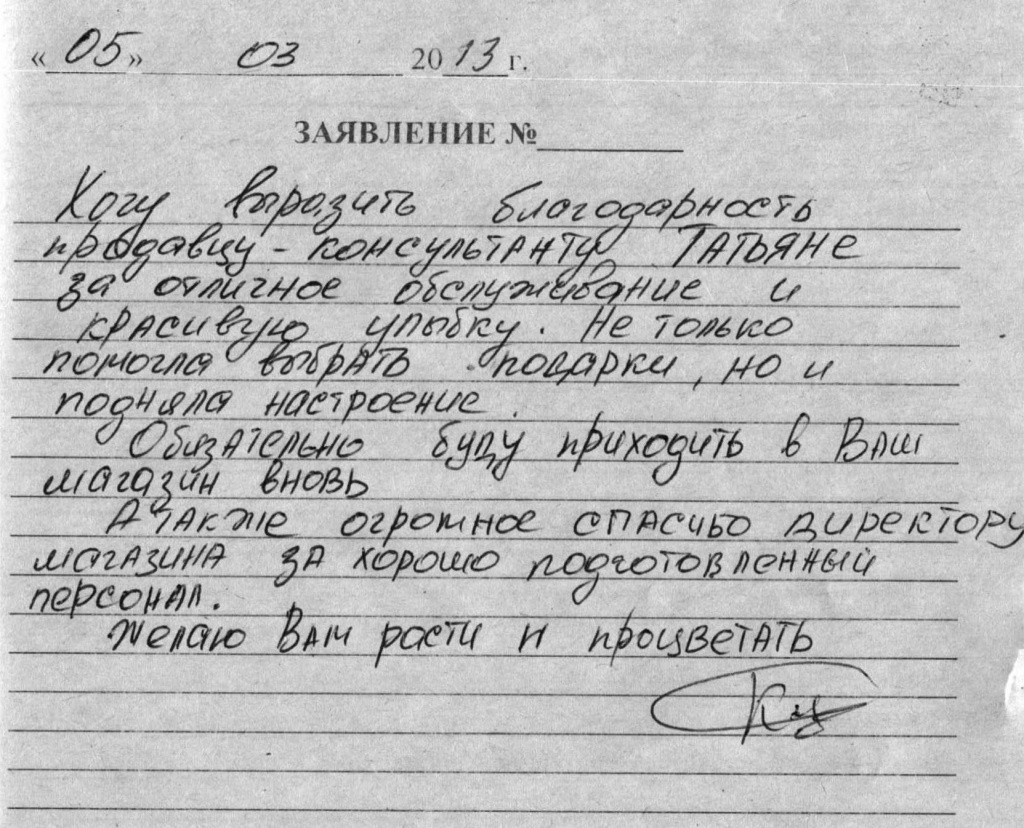 «05» 03 2013 г.
ЗАЯВЛЕНИЕ №
Хочу выразить благодарность
продавцу - консультанту Татьяне
за отличное обслуживание и
красивую улыбку. Не только
помогла выбрать подарки, но и
подняла настроение.
Обязательно буду приходить в Ваш
магазин вновь
А также огромное спасибо директору
магазина за хорошо подготовленный
персонал.
Желаю Вам расти и процветать